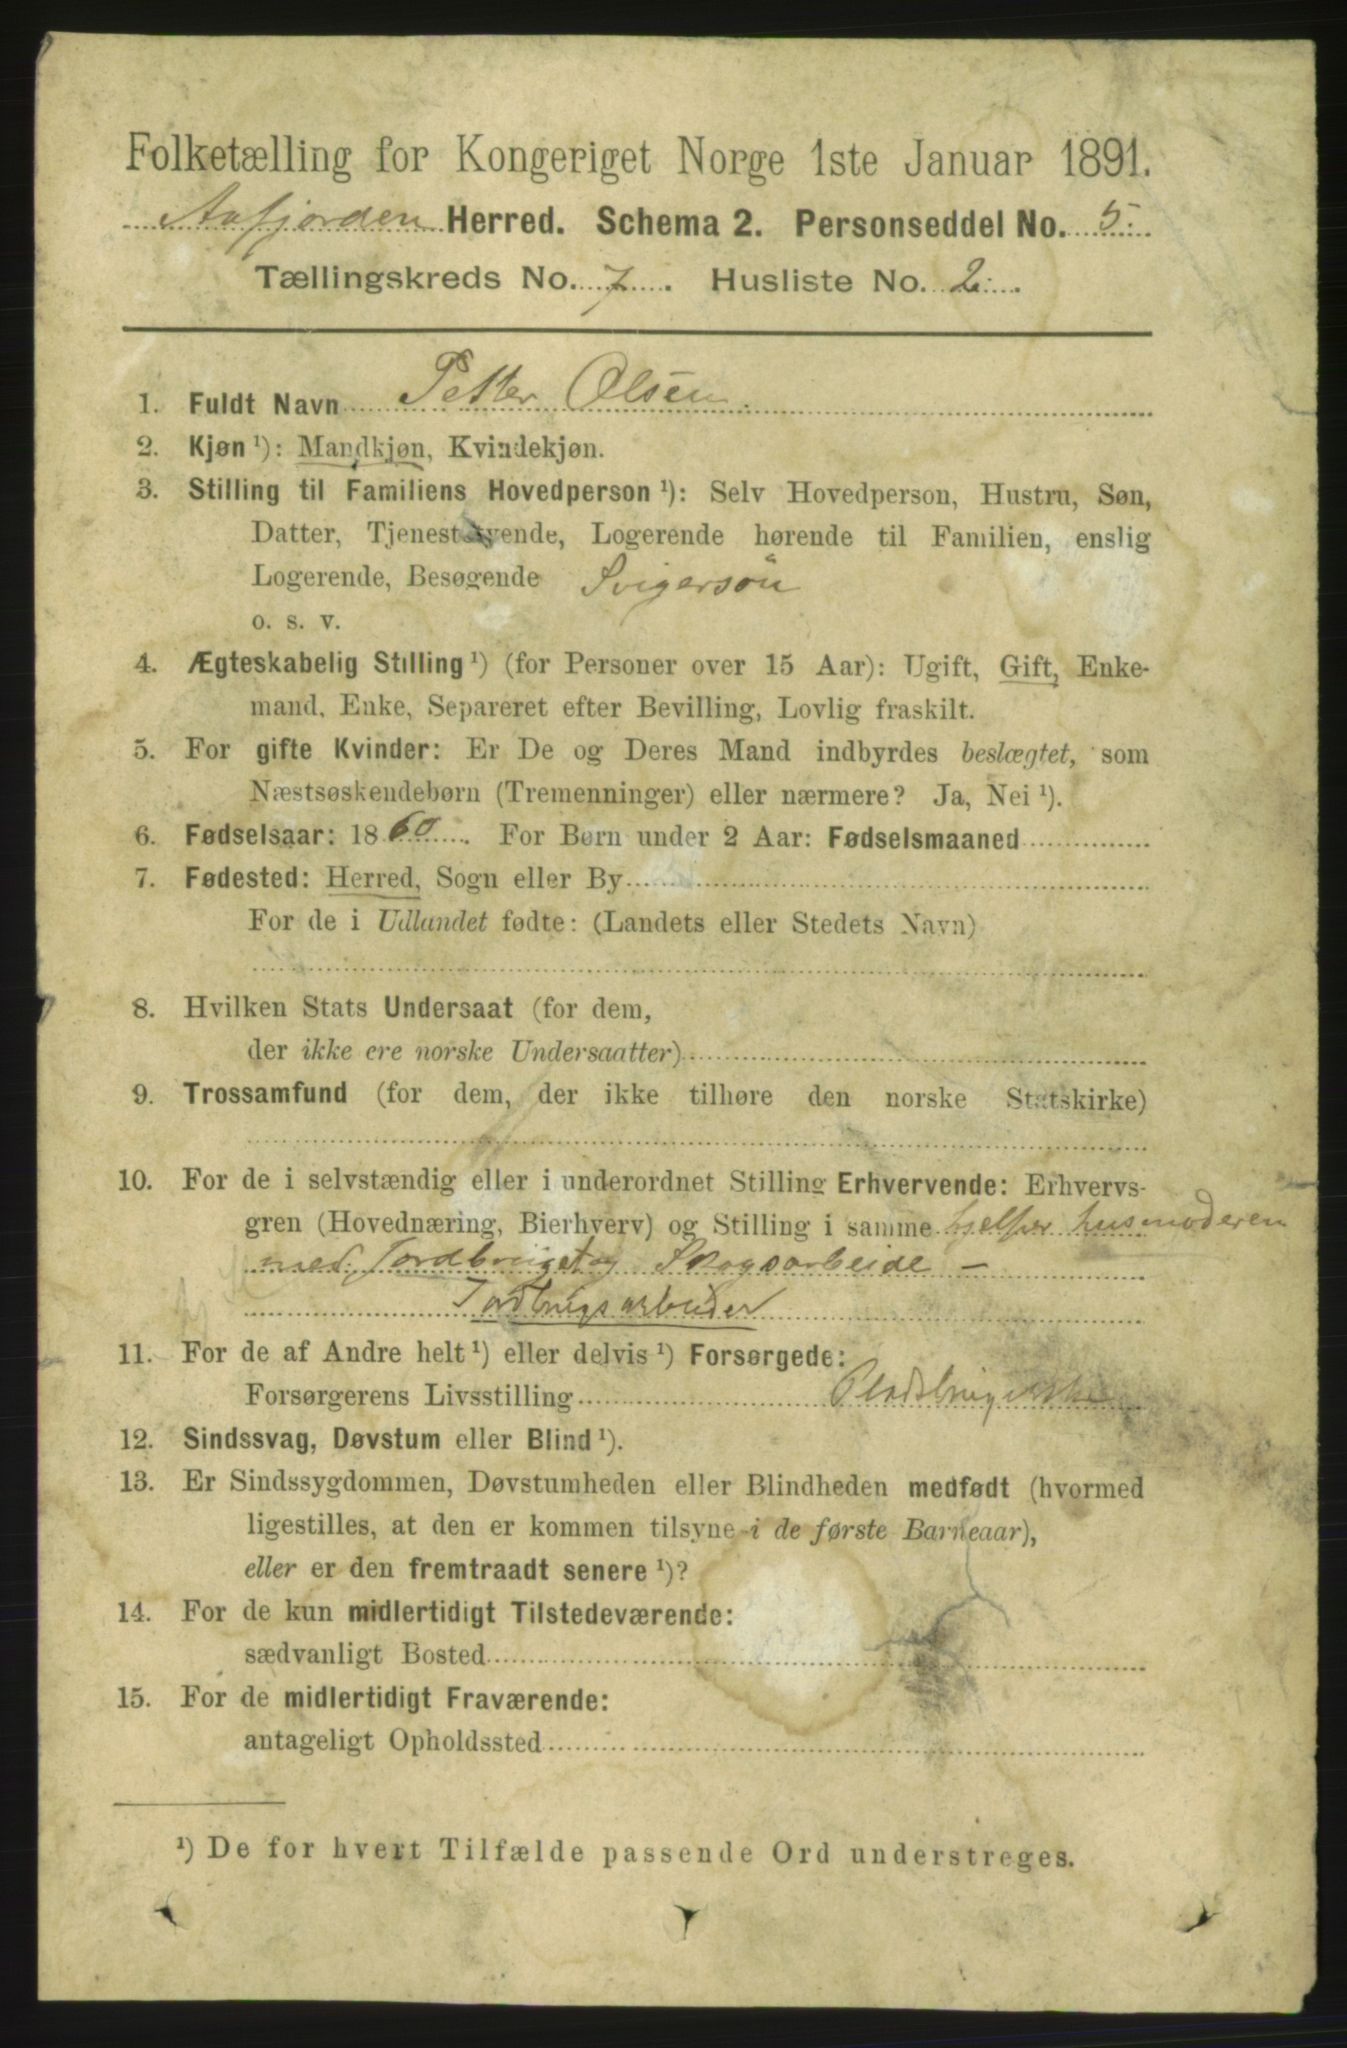 Folketælling for Kongeriget Norge 1ste Januar 1891.
Aafjorden Herred. Schema 2. Personseddel No. 5.
Tællingskreds No. 7. Husliste No. 2.
1. Fuldt Navn Petter Olsen
2. Kjøn ¹): Mandkjøn, Kvindekjøn.
3. Stilling til Familiens Hovedperson ¹): Selv Hovedperson, Hustru, Søn,
Datter, Tjenestetyende, Logerende hørende til Familien, enslig
Logerende, Besøgende Svigersøn
o. s. v.
4. Ægteskabelig Stilling ¹) (for Personer over 15 Aar): Ugift, Gift, Enke-
mand, Enke, Separeret efter Bevilling, Lovlig fraskilt.
5. For gifte Kvinder: Er De og Deres Mand indbyrdes beslægtet, som
Næstsøskendebørn (Tremenninger) eller nærmere? Ja, Nei ¹).
6. Fødselsaar: 1860. For Børn under 2 Aar: Fødselsmaaned
7. Fødested: Herred, Sogn eller By
For de i Udlandet fødte: (Landets eller Stedets Navn)
8. Hvilken Stats Undersaat (for dem,
der ikke ere norske Undersaatter)
9. Trossamfund (for dem, der ikke tilhøre den norske Statskirke)
10. For de i selvstændig eller i underordnet Stilling Erhvervende: Erhvervs-
gren (Hovednæring, Bierhverv) og Stilling i samme hjelper husmoderen
med Jordbruget og Skogsarbeide –
Jordbrugsarbeider
11. For de af Andre helt ¹) eller delvis ¹) Forsørgede:
Forsørgerens Livsstilling
12. Sindssvag, Døvstum eller Blind ¹).
13. Er Sindssygdommen, Døvstumheden eller Blindheden medfødt (hvormed
ligestilles, at den er kommen tilsyne i de første Barneaar),
eller er den fremtraadt senere ¹)?
14. For de kun midlertidigt Tilstedeværende:
sædvanligt Bosted
15. For de midlertidigt Fraværende:
antageligt Opholdssted
¹) De for hvert Tilfælde passende Ord understreges.